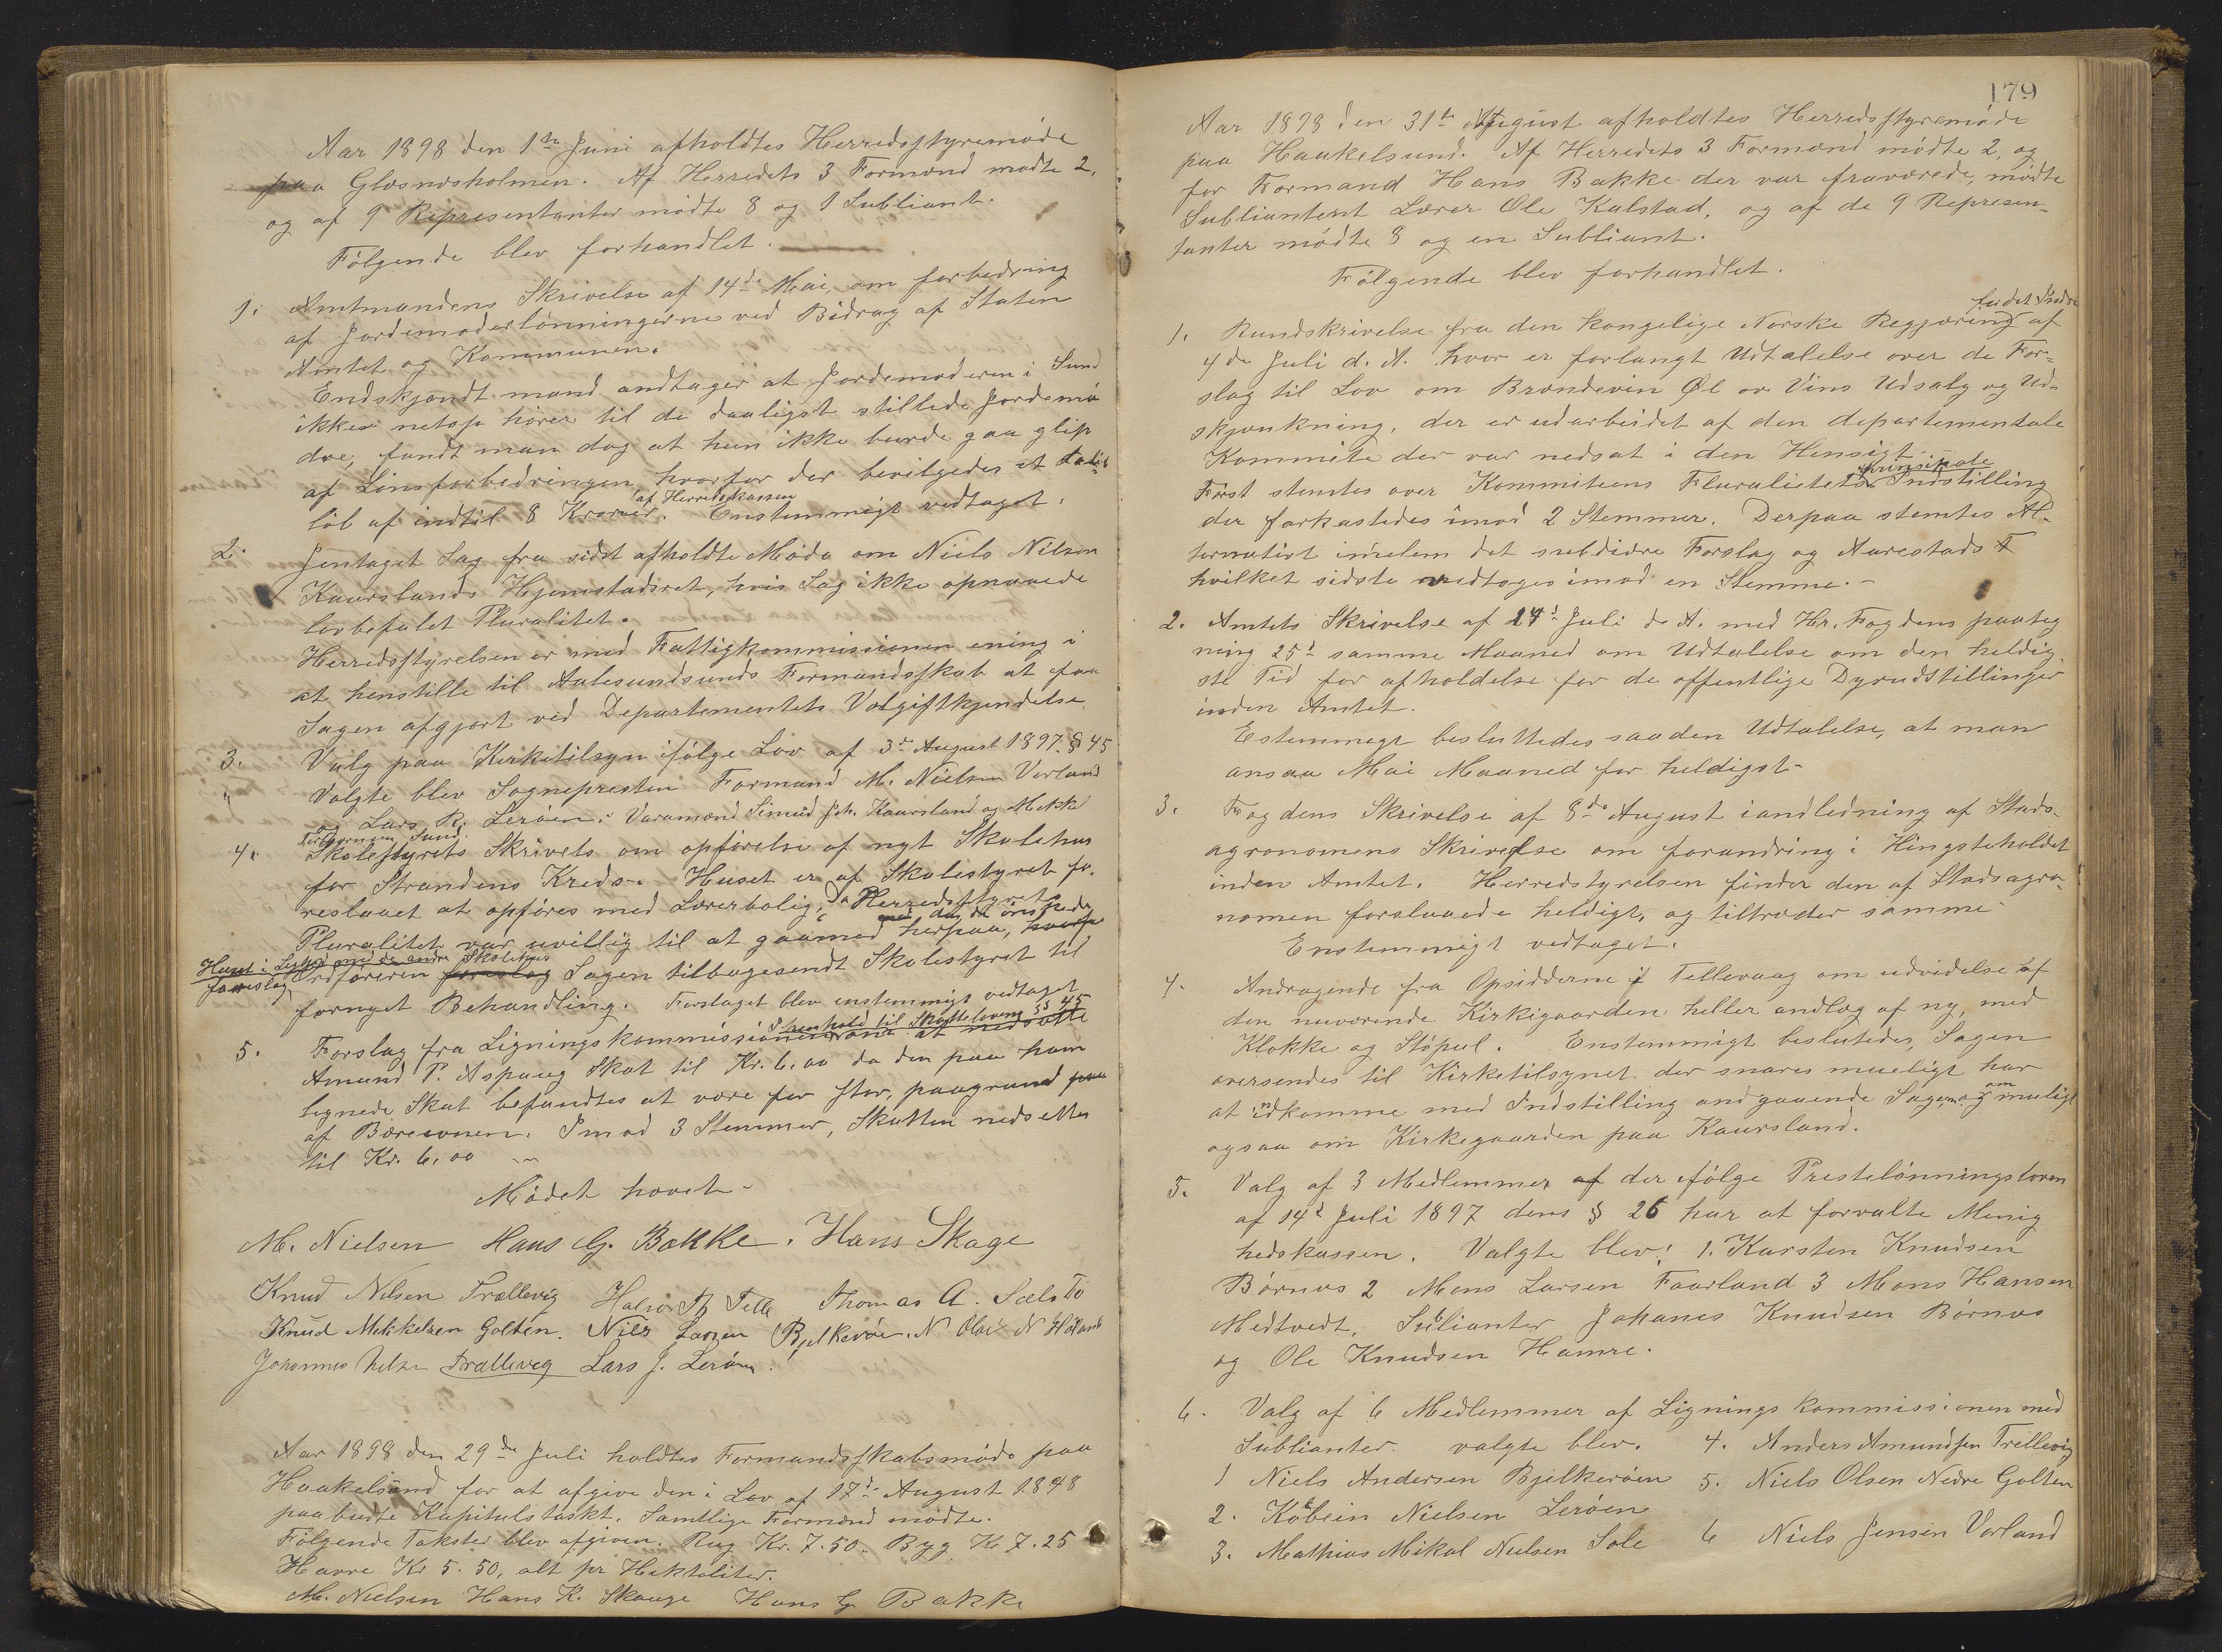 Aar 1898 den 1ste Juni afholdtes Herredsstyremøde
paa Glæsnæsholmen. Af Herredets 3 Formænd mødte 2,
og af 9 Representanter mødte 8 og 1 Subliant.
Følgende blev forhandlet.
1. Amtmandens Skrivelse af 14de Mai, om forbedring
af Jordemoderlønningerne ved Bidrag af Staten
Amtet og Kommunen.
Endskjøndt mand andtager at Jordemoderen i Sund
ikke netop hører til de daaligst stillede Jordemø
dre, fandt man dog at hun ikke burde gaa glip
af Lønsforbedringen, hvorfor der bevilgedes et
løb af indtil 8 Kroner. af Herredskassen Enstemmigt vedtaget.
2. Jentaget Sag fra sidst afholdte Møde om Niels Nilsen
Kaurslands Hjemstadsret, hvis Sag ikke opnaaede
lovbefalet Pluralitet.
Herredsstyrelsen er med Fattigkommissionen ening i
at henstille til Aalesundsunds Formandsskab at faa
Sagen afgjort ved Departementets Volgiftkjendelse.
3. Valg paa Kirketilsyn ifølge Lov af 3de August 1897. § 45
Valgte blev Sognepresten Formand M. Nielsen Vorland
og Lars R. Lerøen. Varamænd Simud Joh. Kaursland og Mekk
Torbjørnsen Sund.
4. Skolestyrets Skrivels om opførelse af nyt Skolehus
for Strandens Kreds. Huset er af Skolestyret fo.
reslaaet at opføres med Lærerbolig, Da Herredsstyrets
Pluralitet var uvillig til at gaa med herpaa, da de ønskede
Huset i Lighed med de andre Skolehus
foreslog Ordføreren Sagen tilbagesendt Skolestyret til
fornyet Behandling. Forslaget blev enstemmigt vedtaget
5. Forslag fra Ligningskommissionen I henhold til Skatteloven §§ 45 om at nedsætte
Amund P. Aspaug Skat til Kr. 6,00 da den paa ham
lignede Skat befandtes at være for stor, paagrund
af Bæreevnen. Imod 3 Stemmer, Skatten nedsettes
til Kr. 6,00
Mødet hævet
M. Nielsen Hans G. Bakke. Hans Skage
Knud Nilsen Trællevig Halvor Th Telle Thomas A. Sælstø
Knud Mekkelsen Golten. Niels Larsen Bjelkerøen. N Olai N Høiland
Johannes Nelsen Trælleveg Lars J. Lerøen.
Aar 1898 den 29de Juli holdtes Formandsskabsmøde paa
Haakelsund for at afgive den i Lov af 17de August 1848
paabudte Kapitulstaskt. Samtlige Formænd mødte.
Følgende Takster blev afgiven. Rug Kr. 7.50. Byg Kr 7.25
Havre Kr 5.50, alt pr Hektoliter.
M. Nielsen Hans K. Skauge Hans G Bakke
179
Aar 1898 den 31te August afholdtes Herredsstyremøde
paa Haakelsund. Af Herredets 3 Formænd mødte 2, og
for Formand Hans Bakke der var fraværede, mødte
Subliantent Lærer Ole Kalstad, og af de 9 Represen-
tanter mødte 8 og en Subliant.
Følgende blev forhandlet.
1. Rundskrivelse fra den kongelige Norske Regjæring af
4de Juli d. A. hvor er forlangt Udtalelse over de For-
slag til Lov om Brændevin Øl ov Vins Udsalg og Ud-
skjænkning, der er udarbeidet af den departementale
Kommite der var nedsat i den Hensigt.
Først stemtes over Kommiteens Fluralitets prinsipale Indstilling
der forkastedes imod 2 Stemmer. Derpaa stemtes Al-
ternativt imelem det subdidre Forslag og Aarestads F
hvilket sidste vedtoges imod en Stemme.
2. Amtets Skrivelse af 24d Juli d. A. med Hr. Fogdens paateg
ning 25d samme Maaned om Udtalelse om den heldig
ste Tid for afholdelse for de offentlige Dyrudstillinger
inden Amtet.
Estemmegt besluttedes saaden Udtalelse, at man
ansaa Mai Maaned for heldigst
3. Fogdens Skrivelse af 8de August iandledning af Stads-
agronomens Skrivelse om forandring i Hingsteholdet
inden Amtet. Herredstyrelsen finder den af Stadsagro-
nomen forslaaede heldigt, og tiltræder samme
Enstemmigt vedtaget.
4. Andragende fra Opsidderne i Tellevaag om udvidelse af
den nuværende Kirkigaarden heller andlæg af ny, med
Klokke og Støpul. Enstemmigt beslutedes, Sagen
oversendes til Kirketilsynet der snares mueligt har
at indkomme med Indstilling andgaaende Sagen, og om muligt
ogsaa om Kirkegaarden paa Kaursland.
5. Valg af 3 Medlemmer af der ifølge Prestelønningsloven
af 14d Juli 1897 dens § 26 har at forvalte Menig
hedskassen. Valgte blev: 1. Karsten Knudsen
Børnæs 2 Mons Larsen Faarland 3 Mons Hansen
Medtvedt, Sublianter Johanes Knudsen Børnæs
og Ole Knudsen Hamre.
6. Valg af 6 Medlemmer af Lignings kommissionen med
Sublianter. valgte blev. 4. Anders Amundsen Trellevig
1 Niels Andersen Bjelkerøen 5. Niels Olsen Nedre Golten
2. Kolbein Nielsen Lerøen
3. Mathias Mikal Nielsen Sole 6 Niels Jensen Vorland